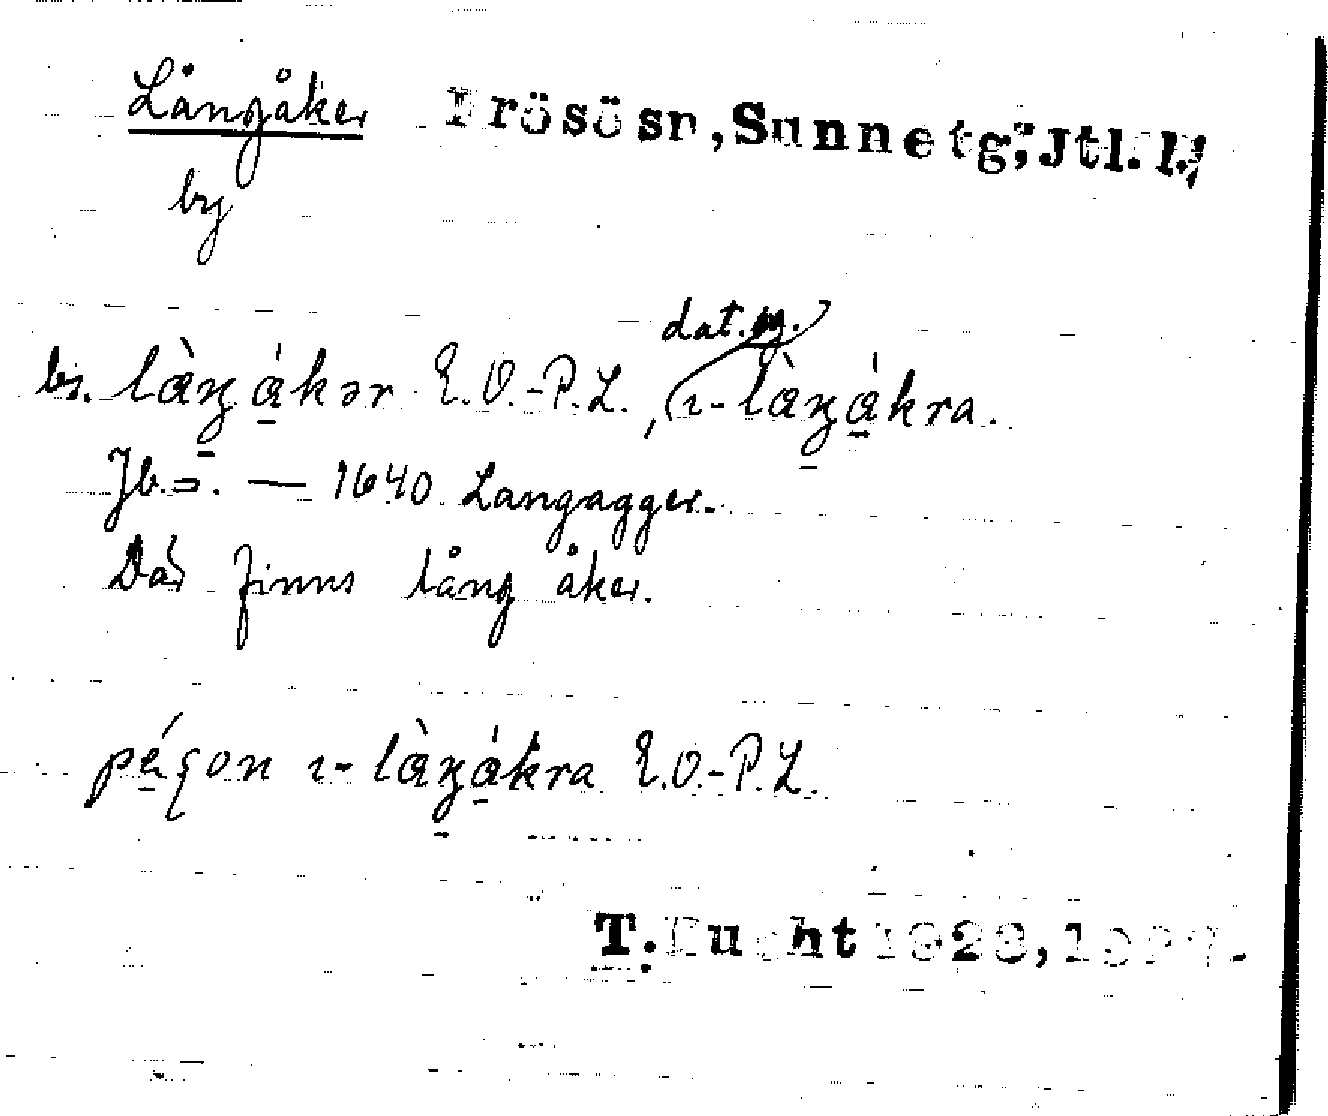 Långåker Frösösn, Sunnetg, Jtl. l.
by
dat.
bs. làŋ̠á̠kər E.O.-P.L., ı-làŋ̠á̠kra.
Jb. =. — 1640 Langagger.
Där finns lång åker.
ı-làŋ̠á̠kra E.O.-P.L.
T. Bucht 1928,